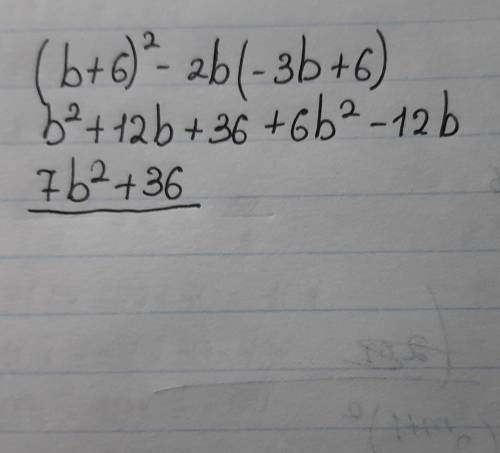 (b+6)² - 2b(-3b+6)
b² + 12b + 36 + 6b² - 12b
7b² + 36